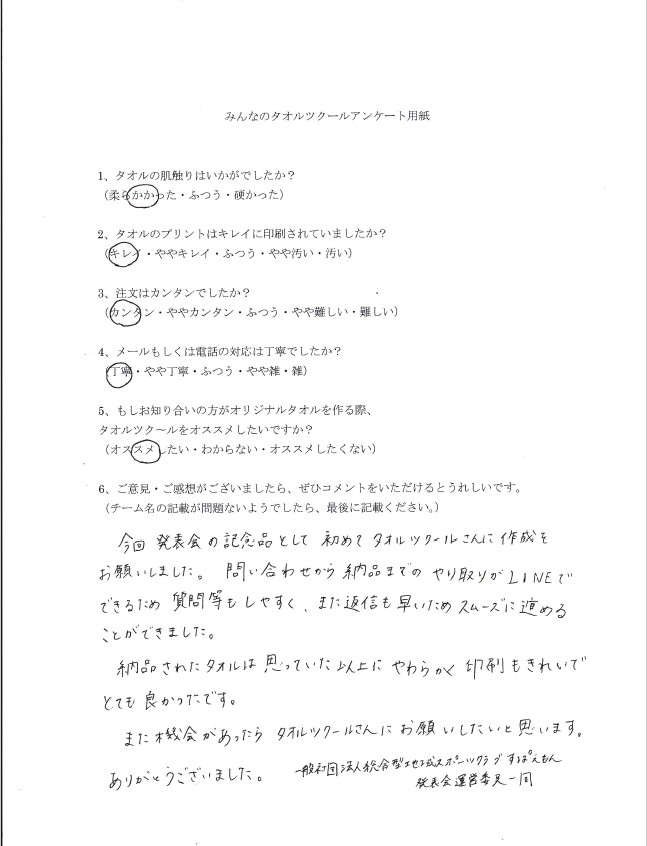 みんなのタオルツクールアンケート用紙
1、タオルの肌触りはいかがでしたか？
（柔らかかった・ふつう・硬かった）
2、タオルのプリントはキレイに印刷されていましたか？
（キレイ・ややキレイ・ふつう・やや汚い・汚い）
3、注文はカンタンでしたか？
（カンタン・ややカンタン・ふつう・やや難しい・難しい）
4、メールもしくは電話の対応は丁寧でしたか？
（丁寧・やや丁寧・ふつう・やや雑・雑）
5、もしお知り合いの方がオリジナルタオルを作る際、
タオルツク～ルをオススメしたいですか？
（オススメしたい・わからない・オススメしたくない）
6、ご意見・ご感想がございましたら、ぜひコメントをいただけるとうれしいです。
（チーム名の記載が問題ないようでしたら、最後に記載ください。）
今回 発表会の記念品として 初めて タオルツクールさんに作成を
お願いしました。 問い合わせから納品までの やり取りがLINEで
できるため 質問等もしやすく、また返信も早いため スムーズに進める
ことができました。
納品されたタオルは思っていた以上に やわらかく 印刷もきれいで
とても良かったです。
また機会があったら タオルツクールさんにお願いしたいと思います。
ありがとうございました。
一般社団法人総合型地域スポーツクラブ すぽえもん
発表会運営委員一同